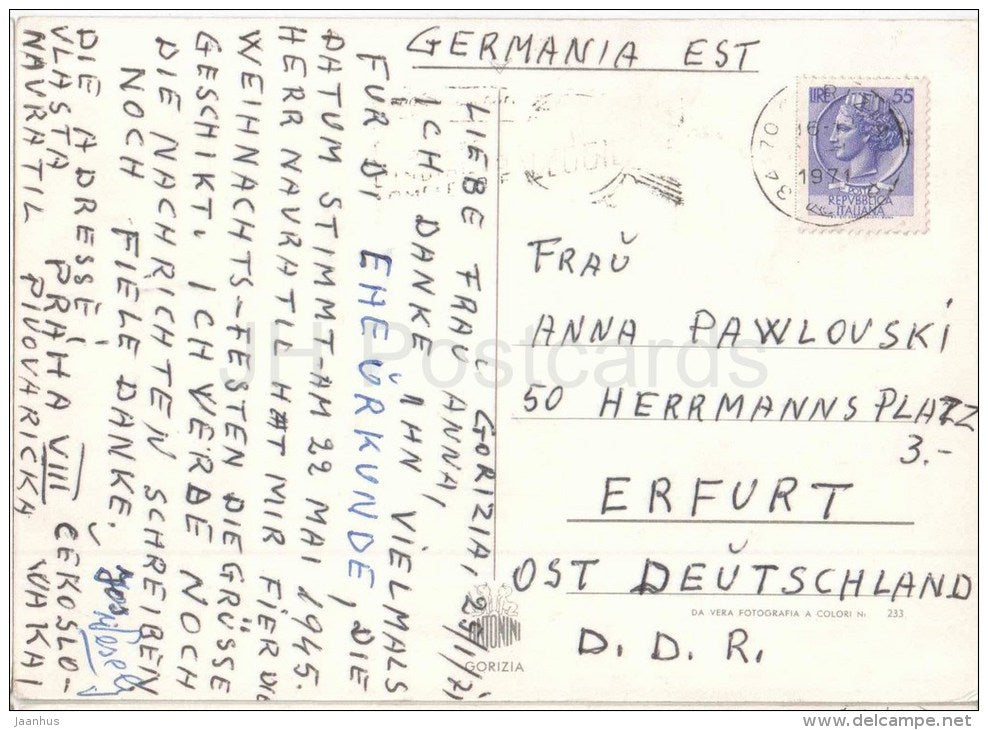 GERMANIA EST
GORIZIA, 25/1/71
LIEBE FRAU ANNA,
ICH DANKE IHN VIELMALS
FUR DI EHEŬRKUNDE, DIE
DATUM STIMMT-AM 22 MAI 1945.
HERR NAVRATIL HAT MIR FIER
WEIHNACHTS-FESTEN DIE GRÜSSE
GESCHIKT, ICH WERDE NOCH
DIE NACHRICHTEN SCHREIBEN
NOCH FIELE DANKE.
DIE ADRESSE:
VLASTA PRAHA VIII ČEKOSLO-
NAVRATIL PIVOVARICKA VAKAI
LIRE 55
POSTE
REPVBBLICA
ITALIANA
34170
1971
FRAŬ
ANNA PAWLOVSKI
50 HERRMANNSPLATZ
3.-
ERFURT
OST DEŬTSCHLAND
D. D. R.
DA VERA FOTOGRAFIA A COLORI N. 233
ANTONINI
GORIZIA
JH Postcards
Jaanhus
www.delcampe.net